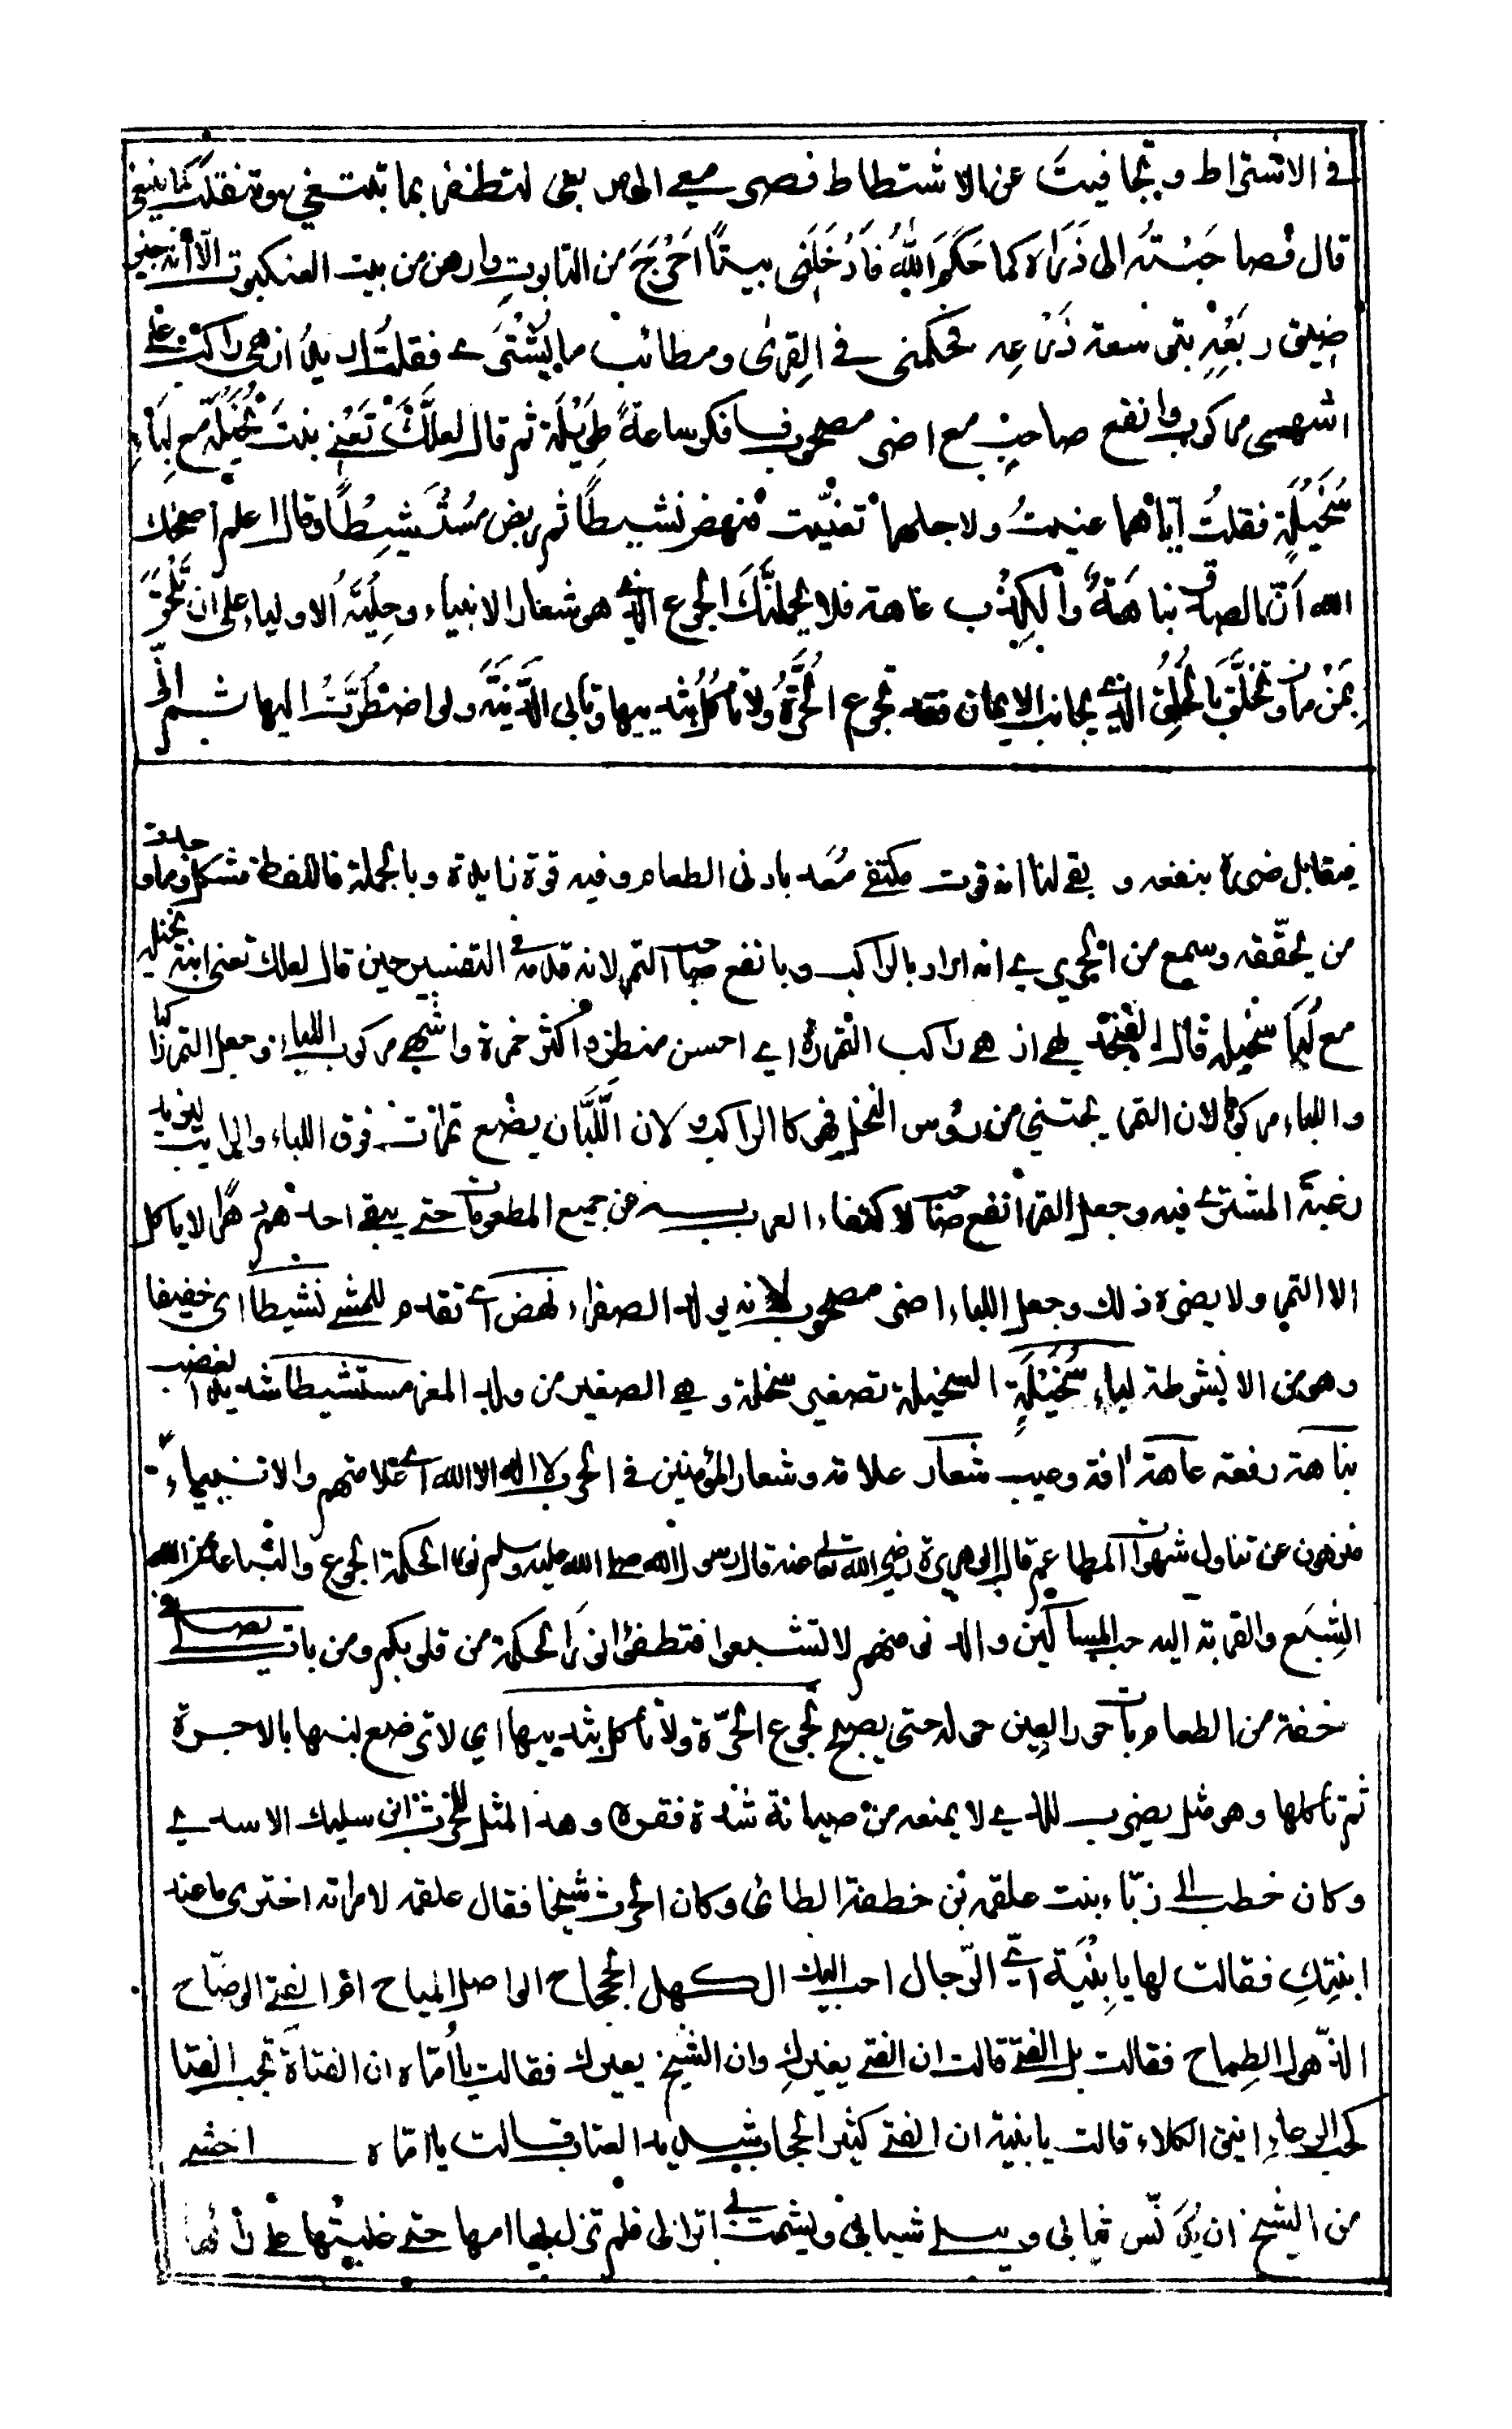 في الاشتراط وتجافيت عن الاشتطاط فصر معي الى مربعي لتظفر بما تبتغي وتنقلب كما ينبغي
قال فصاحبته الى ذراه كما حكم الله فادخلني بيتا احرج من التابوت واوهن من بيت العنكبوت الا انه جبر
ضيق ربعه بتوسعة ذرعه فحكمني في القرى ومطائب ما يشترى فقلت اريد ازهى راكب على
اشهى مركوب وانفع صاحب مع اضر مصحوب فافكر ساعة طويلة ثم قال لعلك تعني بنت نخيلة مع لباء
سخيلة فقلت اياهما عنيت ولاجلهما تعنيت فنهض نشيطا ثم ربض مستشيطا وقال اعلم اصلحك
الله ان الصدق نباهة والكذب عاهة فلا يحملنك الجوع الذي هو شعار الانبياء وحلية الاولياء على ان تلحق
بمن مان وتخلق بالخلق الذي يجانب الايمان فقد تجوع الحرة ولا تأكل بثدييها وتأبى الدنية ولو اضطرت اليها ثم اني
فيقابل ضره بنفعه و بقي لنا انه قوت مكتفى معه بادنى الطعام وفيه قوة زايدة وبالجملة فاللفظة مشكلة وما
من يحققه وسمع من الحريري انه اراد بالراكب وبانفع صاحب التمر لانه قدمه في التفسير حين قال لعلك تعني ابنة نخيله
مع لبا سخيله قال ازهى راكب التمرة اي احسن منظرا واكثر خمرة واشهى مركوب اللباء وجعل التمر راكبا
واللباء مركوبا لان التمر يجتنى من رؤس النخل فهو كالراكب ولان اللبان يضع تمرات فوق اللباء والرايب ليزيد
رغبة المشتري فيه وجعل التمر انفع صاحب لاكتفاء العرب به عن جميع المطعومات حتى يبقى احدهم دهرا لا ياكل
الا التمر ولا يضره ذلك وجعل اللباء اضر مصحوب لانه يولد الصفراء نهض اي تقدم للمشي نشيطا اي خفيفا
وهو من الانشوطة لباء سخيلة السخيلة تصغير سخلة وهي الصغير من ولد المعز مستشيطا شديد الغضب
نباهة رفعة عاهة افة وعيب شعار علامة وشعار المؤمنين في الحروب لا اله الا الله اي علامتهم والانبياء
منزهون عن تناول شهوات المطاعم قال ابو هريرة رضي الله تعالى عنه قال رسول الله صلى الله عليه وسلم نور الحكمة الجوع والتباعد من الله
الشبع والقربة اليه حب المساكين والدنو منهم لا تشبعوا فتطفئوا نور الحكمة من قلوبكم ومن بات يصلي في
خفة من الطعام بات حور العين حوله حتى يصبح تجوع الحرة ولا تأكل بثدييها اي لا ترضع لبنها بالاجرة
ثم تأكلها وهو مثل يضرب للذي لا يمنعه من صيانة شدة فقره وهذا المثل للحرث ابن سليك الاسدي
وكان خطب الى زباء بنت علقمه بن خطفة الطائي وكان الحرث شيخا فقال علقمه لامراته اختبري ما عند
ابنتك فقالت لها يا بنية اي الرجال احب اليك الكهل الجحجاح الواصل المياح ام الفتى الوضاح
الذهول الطماح فقالت بل الفتى قالت ان الفتى يغيرك وان الشيخ يعيرك فقالت يا اماه ان الفتاة تحب الفتا
كحب الرعاء انيق الكلاء قالت يا بنية ان الفتى كثير الحجاب شديد العتاب قالت يا اماه اخشى
من الشيخ ان يدنس ثيابي ويبلي شبابي ويشمت بي اترابي فلم تزل بها امها حتى غلبتها على رأيها